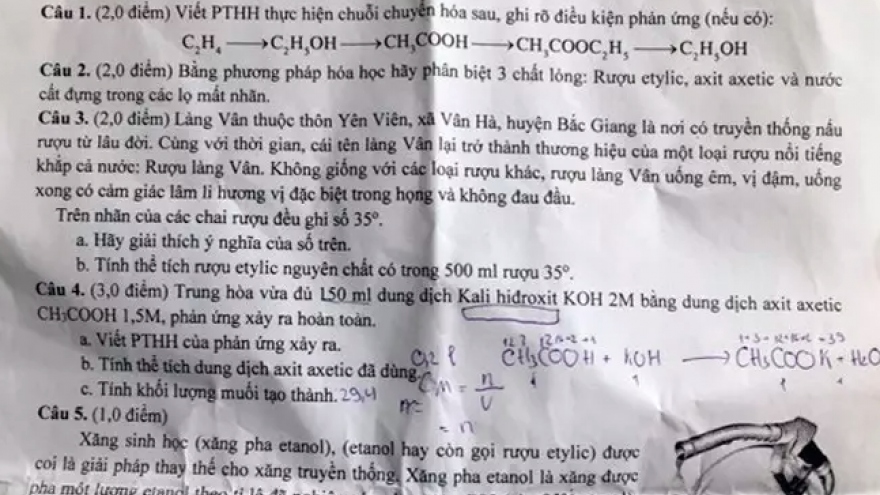 Câu 1. (2,0 điểm) Viết PTHH thực hiện chuỗi chuyển hóa sau, ghi rõ điều kiện phản ứng (nếu có):
C₂H₄ ⟶ C₂H₅OH ⟶ CH₃COOH ⟶ CH₃COOC₂H₅ ⟶ C₂H₅OH
Câu 2. (2,0 điểm) Bằng phương pháp hóa học hãy phân biệt 3 chất lỏng: Rượu etylic, axit axetic và nước
cất đựng trong các lọ mất nhãn.
Câu 3. (2,0 điểm) Làng Vân thuộc thôn Yên Viên, xã Vân Hà, huyện Bắc Giang là nơi có truyền thống nấu
rượu từ lâu đời. Cùng với thời gian, cái tên làng Vân lại trở thành thương hiệu của một loại rượu nổi tiếng
khắp cả nước: Rượu làng Vân. Không giống với các loại rượu khác, rượu làng Vân uống êm, vị đậm, uống
xong có cảm giác lâm li hương vị đặc biệt trong họng và không đau đầu.
Trên nhãn của các chai rượu đều ghi số 35º.
a. Hãy giải thích ý nghĩa của số trên.
b. Tính thể tích rượu etylic nguyên chất có trong 500 ml rượu 35º.
Câu 4. (3,0 điểm) Trung hòa vừa đủ 150 ml dung dịch Kali hiđroxit KOH 2M bằng dung dịch axit axetic
CH₃COOH 1,5M, phản ứng xảy ra hoàn toàn.
a. Viết PTHH của phản ứng xảy ra.
b. Tính thể tích dung dịch axit axetic đã dùng. 0,2 l
CH₃COOH + KOH ⟶ CH₃COOK + H₂O
1 1 1 1
c. Tính khối lượng muối tạo thành. 29,4
CM = n/V
= n
Câu 5. (1,0 điểm)
Xăng sinh học (xăng pha etanol), (etanol hay còn gọi rượu etylic) được
coi là giải pháp thay thế cho xăng truyền thống. Xăng pha etanol là xăng được
pha một lượng etanol theo tỉ lệ đã